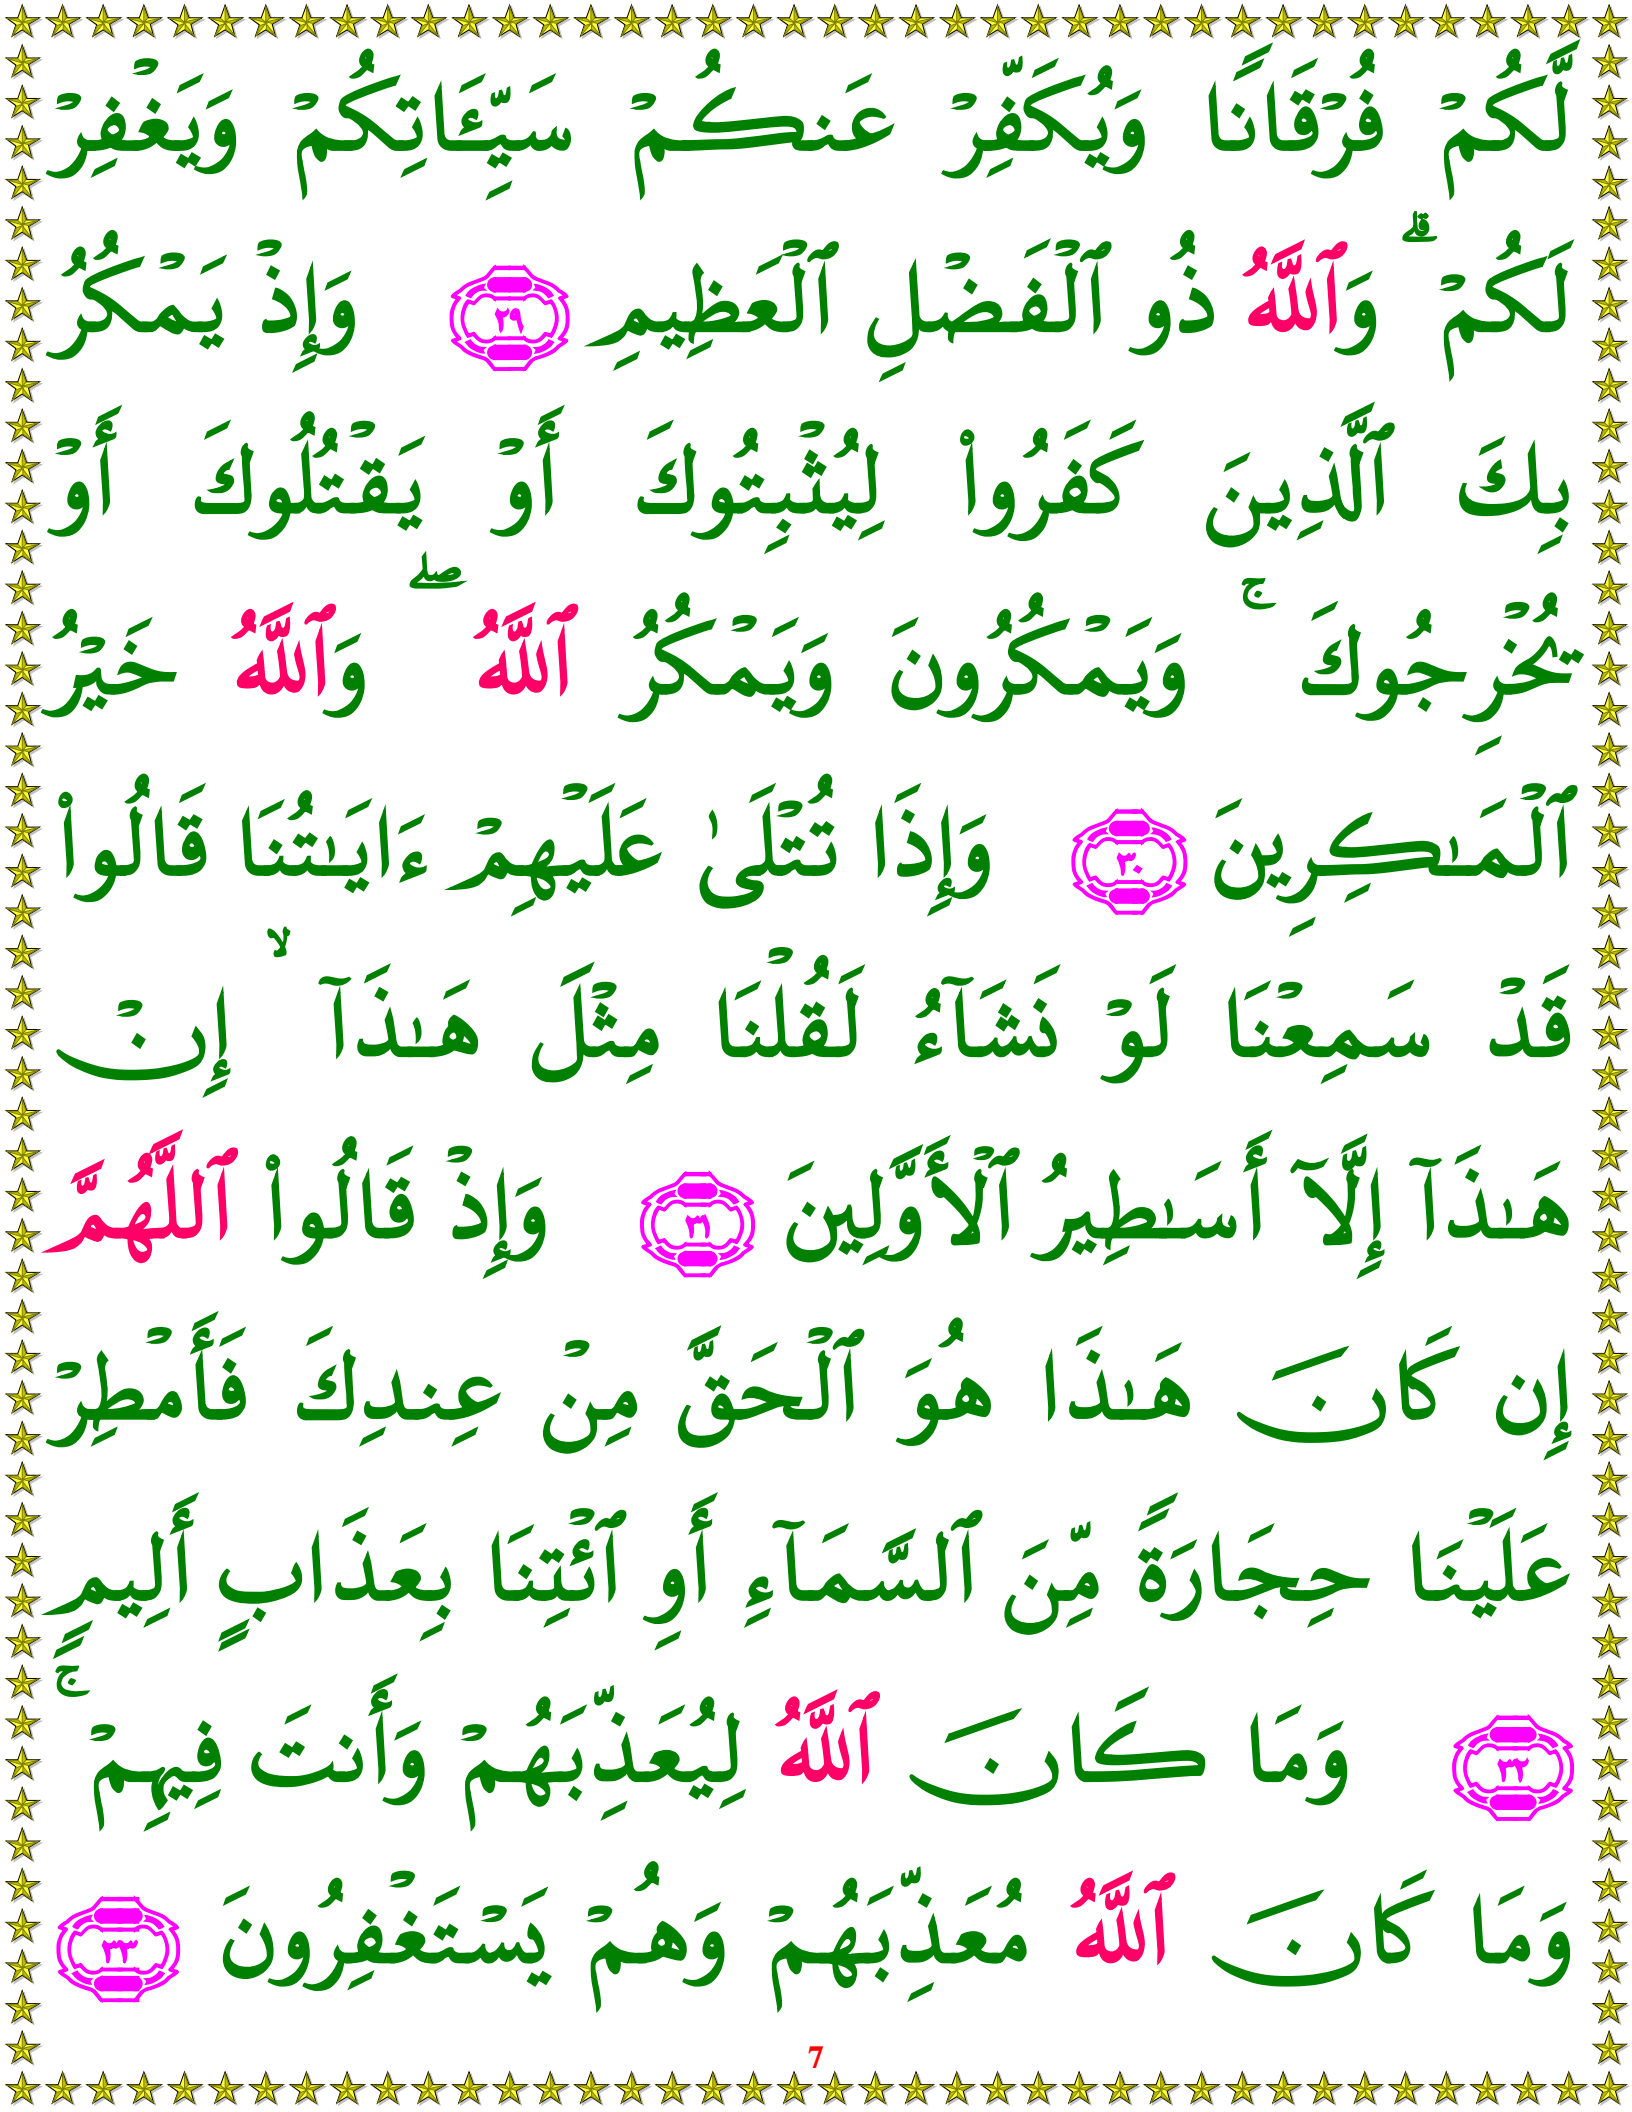 لَّكُمْ فُرْقَانًا وَيُكَفِّرْ عَنكُمْ سَيِّـَٔاتِكُمْ وَيَغْفِرْ
لَكُمْ ۗ وَٱللَّهُ ذُو ٱلْفَضْلِ ٱلْعَظِيمِ ٢٩ وَإِذْ يَمْكُرُ
بِكَ ٱلَّذِينَ كَفَرُوا۟ لِيُثْبِتُوكَ أَوْ يَقْتُلُوكَ أَوْ
يُخْرِجُوكَ ۚ وَيَمْكُرُونَ وَيَمْكُرُ ٱللَّهُ ۖ وَٱللَّهُ خَيْرُ
ٱلْمَـٰكِرِينَ ٣٠ وَإِذَا تُتْلَىٰ عَلَيْهِمْ ءَايَـٰتُنَا قَالُوا۟
قَدْ سَمِعْنَا لَوْ نَشَآءُ لَقُلْنَا مِثْلَ هَـٰذَآ ۙ إِنْ
هَـٰذَآ إِلَّآ أَسَـٰطِيرُ ٱلْأَوَّلِينَ ٣١ وَإِذْ قَالُوا۟ ٱللَّهُمَّ
إِن كَانَ هَـٰذَا هُوَ ٱلْحَقَّ مِنْ عِندِكَ فَأَمْطِرْ
عَلَيْنَا حِجَارَةً مِّنَ ٱلسَّمَآءِ أَوِ ٱئْتِنَا بِعَذَابٍ أَلِيمٍ
٣٢ وَمَا كَانَ ٱللَّهُ لِيُعَذِّبَهُمْ وَأَنتَ فِيهِمْ ۚ
وَمَا كَانَ ٱللَّهُ مُعَذِّبَهُمْ وَهُمْ يَسْتَغْفِرُونَ ٣٣
7